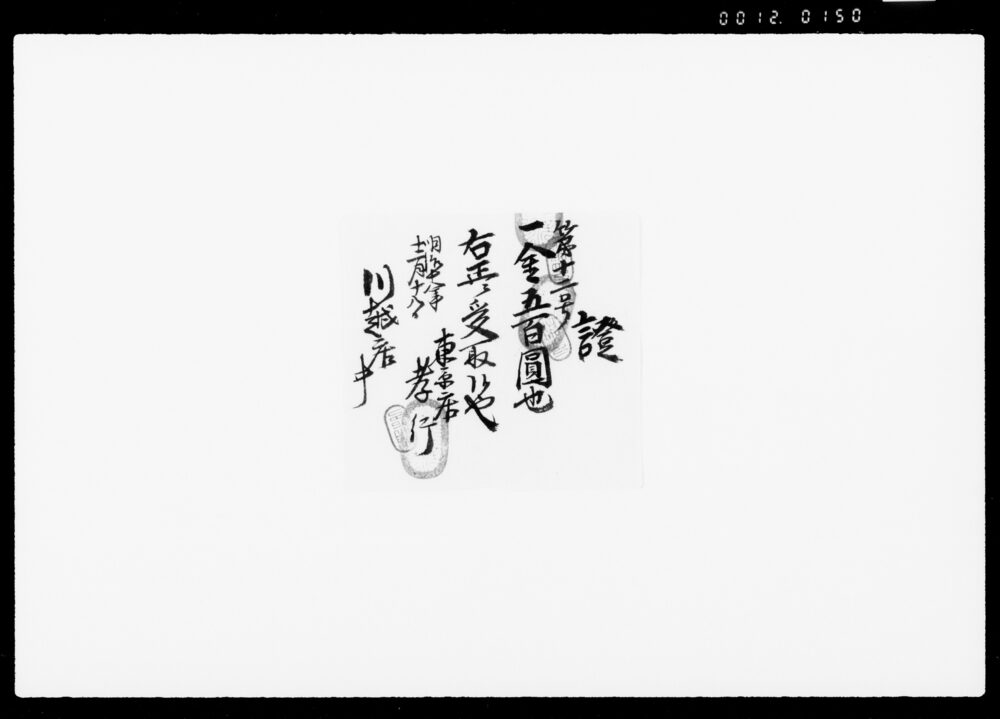 0012. 0150
證
第十二号
一金五百圓也
右正ニ受取候也
明治
東京店
孝行
川越店
中